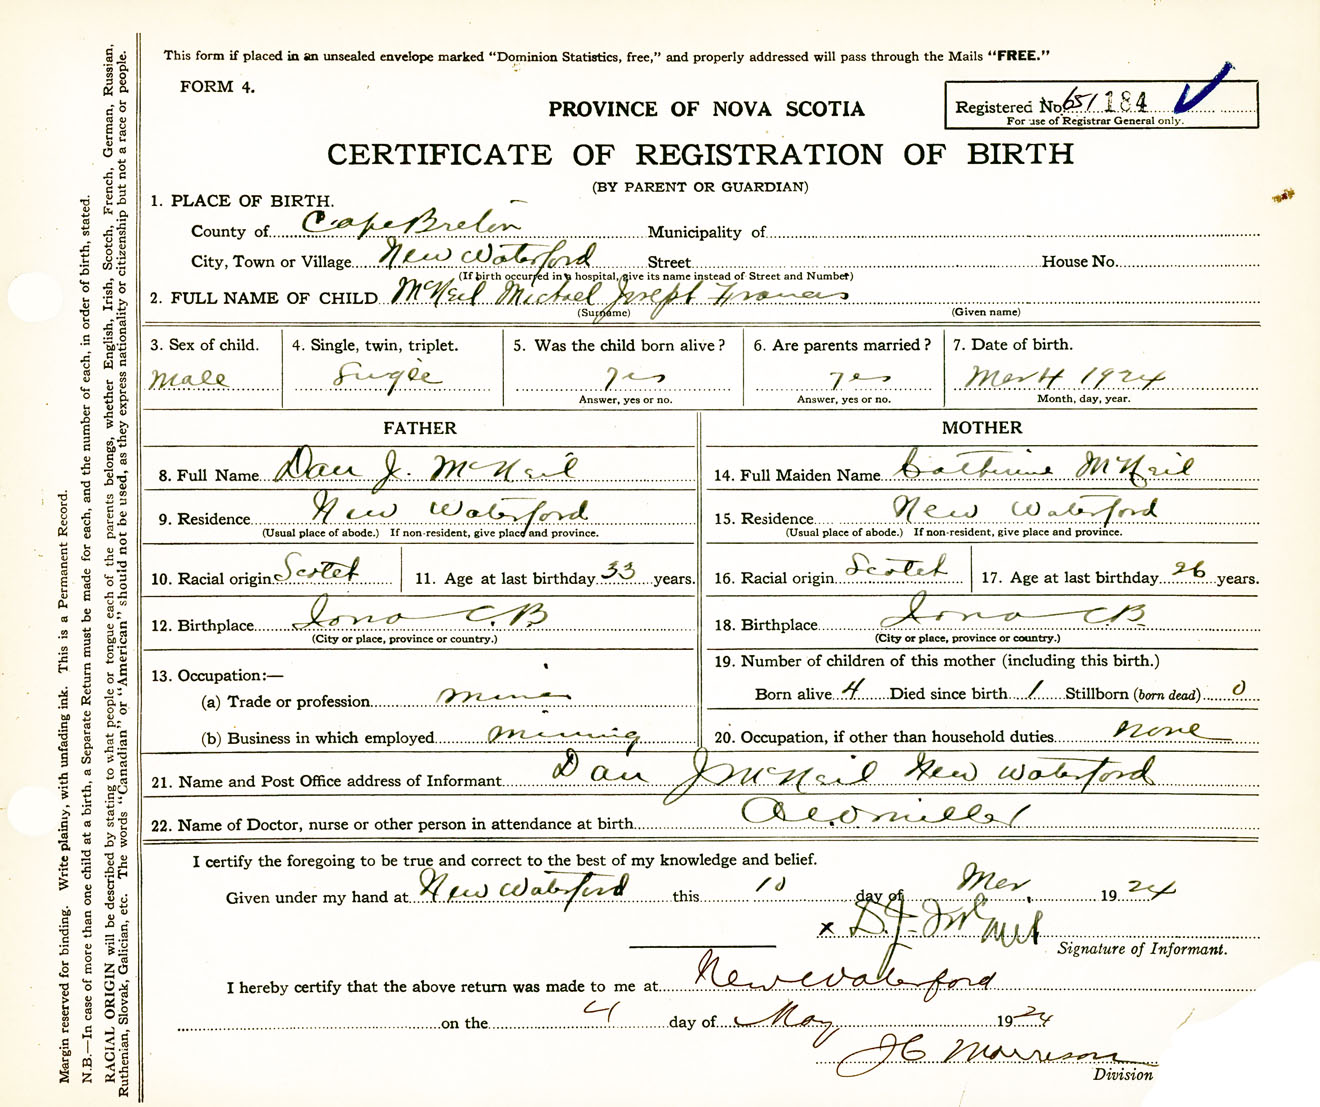 This form if placed in an unsealed envelope marked "Dominion Statistics, free," and properly addressed will pass through the Mails "FREE."
FORM 4.
PROVINCE OF NOVA SCOTIA
Registered No. 651 184
For use of Registrar General only.
CERTIFICATE OF REGISTRATION OF BIRTH
(BY PARENT OR GUARDIAN)
1. PLACE OF BIRTH.
County of Cape Breton Municipality of
City, Town or Village New Waterford Street House No.
(If birth occurred in a hospital, give its name instead of Street and Number)
2. FULL NAME OF CHILD McNeil Michael Joseph Francis
(Surname) (Given name)
3. Sex of child. 4. Single, twin, triplet. 5. Was the child born alive? 6. Are parents married? 7. Date of birth.
Male Single Yes Yes Mar 4 1924
Answer, yes or no. Answer, yes or no. Month, day, year.
FATHER MOTHER
8. Full Name Dan J. McNeil 14. Full Maiden Name Catherine McNeil
9. Residence New Waterford 15. Residence New Waterford
(Usual place of abode.) If non-resident, give place and province. (Usual place of abode.) If non-resident, give place and province.
10. Racial origin Scotch 11. Age at last birthday 33 years. 16. Racial origin Scotch 17. Age at last birthday 26 years.
12. Birthplace Iona C.B 18. Birthplace Iona C.B.
(City or place, province or country.) (City or place, province or country.)
13. Occupation:— 19. Number of children of this mother (including this birth.)
(a) Trade or profession Miner Born alive 4 Died since birth 1 Stillborn (born dead) 0
(b) Business in which employed Mining 20. Occupation, if other than household duties none
21. Name and Post Office address of Informant Dan J McNeil New Waterford
22. Name of Doctor, nurse or other person in attendance at birth Miller
I certify the foregoing to be true and correct to the best of my knowledge and belief.
Given under my hand at New Waterford this 10 day of Mar. 1924
x D.J. McNeil
Signature of Informant.
I hereby certify that the above return was made to me at New Waterford
on the 4 day of May 1924
J C Morrison
Division
Margin reserved for binding. Write plainly, with unfading ink. This is a Permanent Record.
N.B.—In case of more than one child at a birth, a Separate Return must be made for each, and the number of each, in order of birth, stated.
RACIAL ORIGIN will be described by stating to what people or tongue each of the parents belongs, whether English, Irish, Scotch, French, German, Russian,
Ruthenian, Slovak, Galician, etc. The words "Canadian" or "American" should not be used, as they express nationality or citizenship but not a race or people.